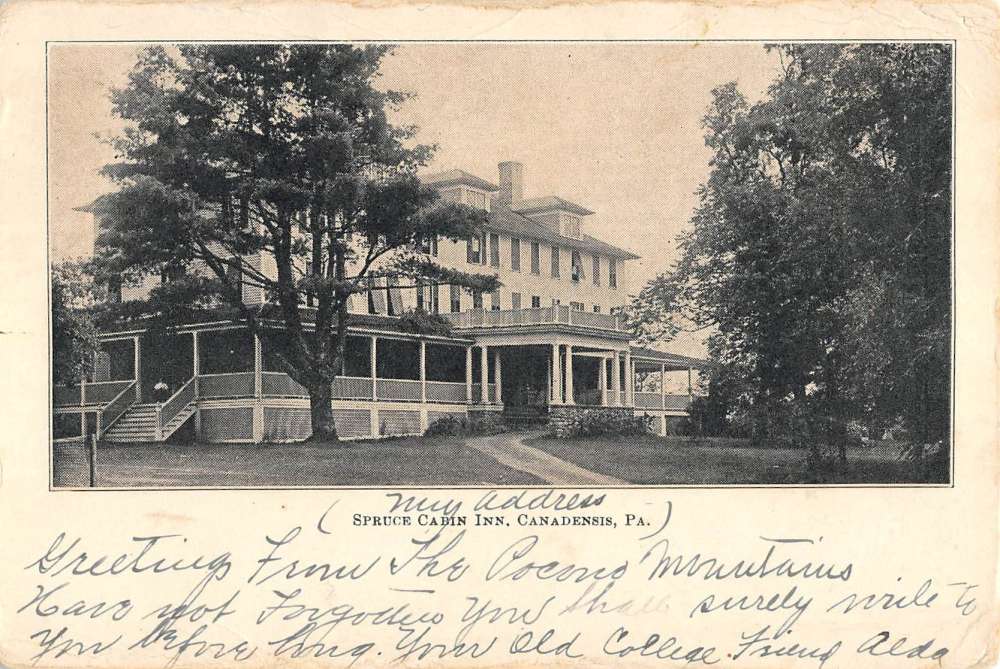 ( My Address )
Spruce Cabin Inn, Canadensis, Pa.
Greetings From The Pocono Mountains
Have not Forgotten You Shall surely write to
You before long. Your Old College Friend Alda